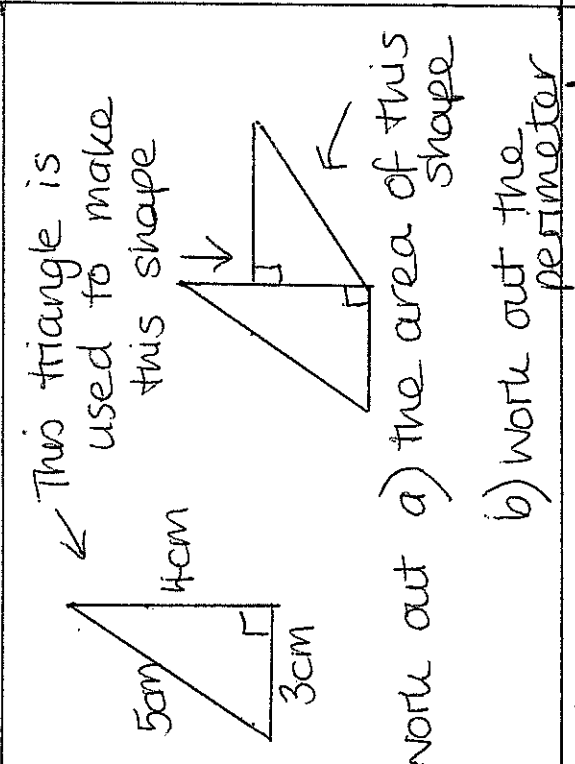 This triangle is
used to make
this shape
5cm
4cm
3cm
work out a) the area of this
shape
b) work out the
perimeter